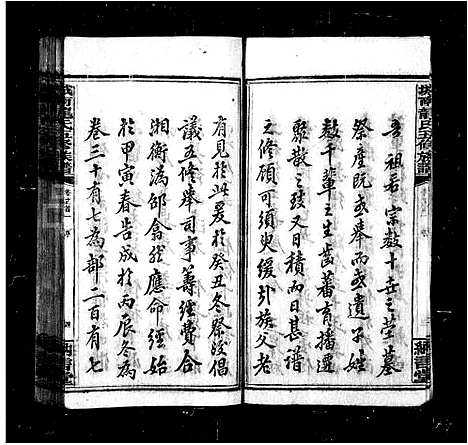 吾祖若宗數十世之塋墓
祭產旣或舉而或遺子姓
數千輩之生齒蕃育播遷
聚散之跡又日積而日甚譜
之修顧可須臾緩邪族父老
有見於此爰於癸丑冬祭後倡
議五修舉司事籌經費合
湘衡瀏邵翕然應命經始
於甲寅春告成於丙辰冬為
卷三十有七為部二百有七
五修族譜
四